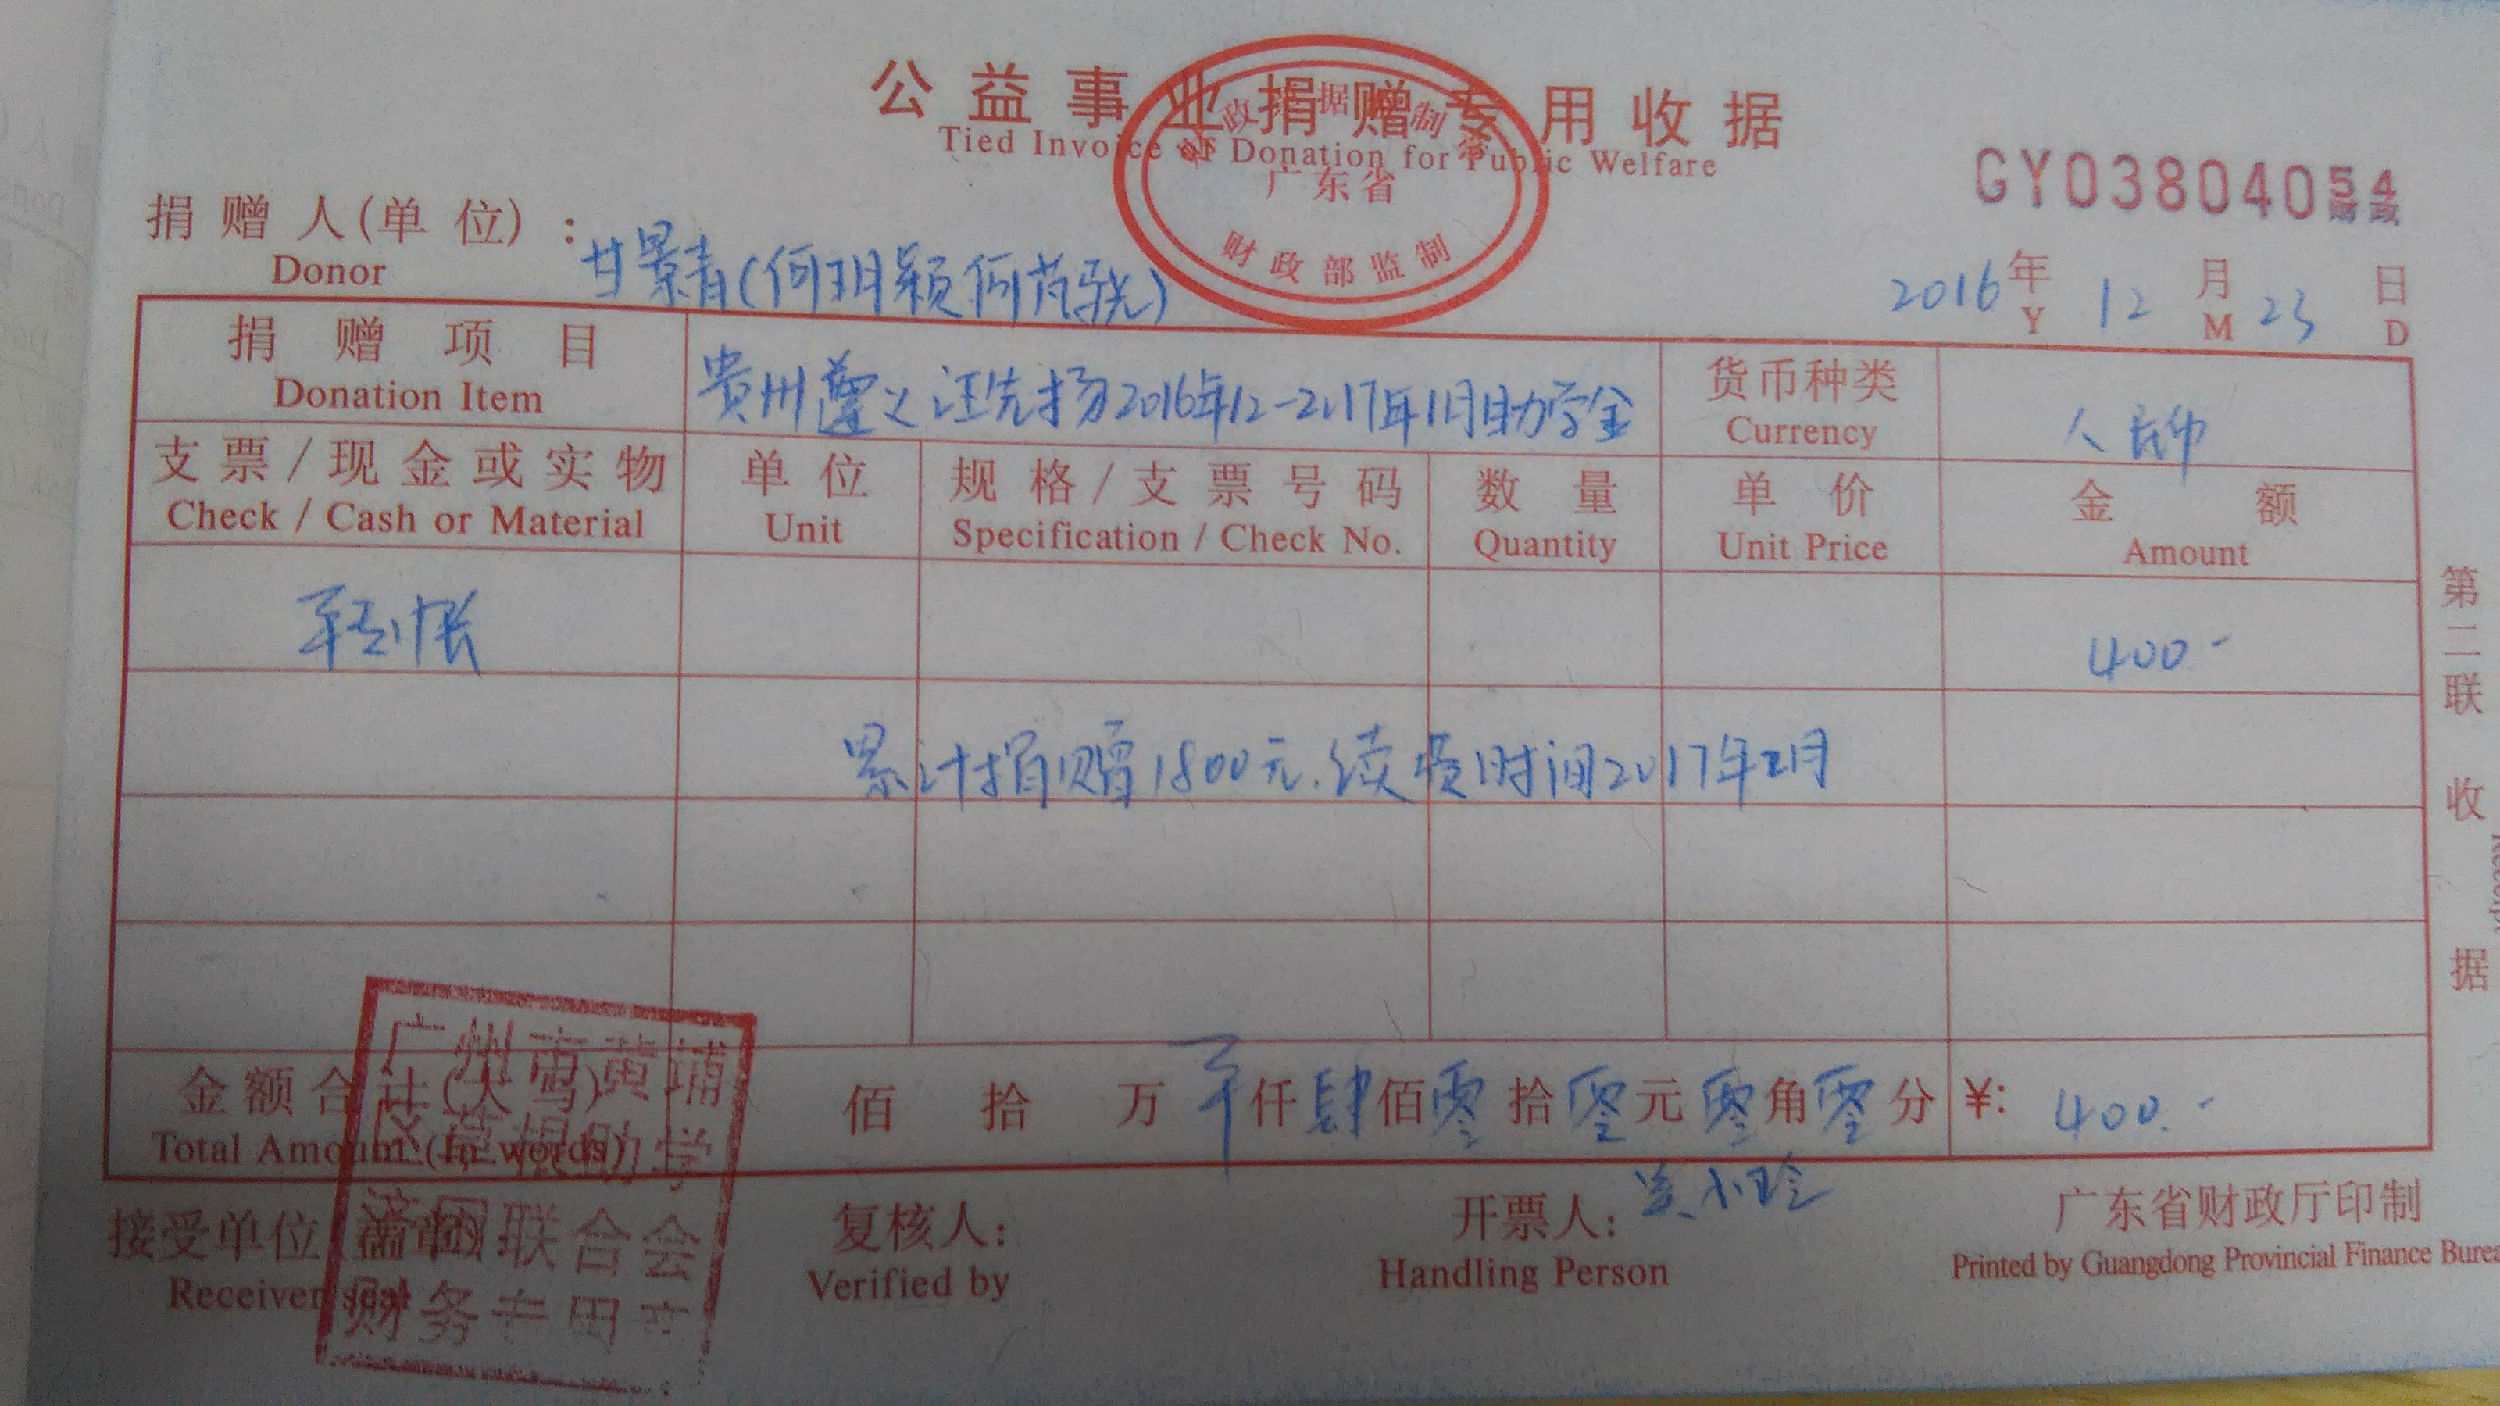 公益事业捐赠专用收据
Tied Invoice of Donation for Public Welfare
广东省
财政部监制
GY03804054
捐赠人(单位):甘景青(何玥颖何芃骁)
Donor
2016年12月23日
Y M D
捐赠项目 贵州遵义汪先扬2016年12-2017年1月助学金 货币种类 人民币
Donation Item Currency
支票/现金或实物 单位 规格/支票号码 数量 单价 金额
Check / Cash or Material Unit Specification / Check No. Quantity Unit Price Amount
到帐 400-
累计捐赠1800元.续费时间2017年2月
金额合计(大写) 佰 拾 万 仟肆佰零拾零元零角零分 ¥: 400.-
Total Amount (In words)
接受单位(盖章): 复核人: 开票人: 吴小玲 广东省财政厅印制
Receiver seal Verified by Handling Person Printed by Guangdong Provincial Finance Burea
广州市黄埔
区草根助学
济困联合会
财务专用章
第二联 收据